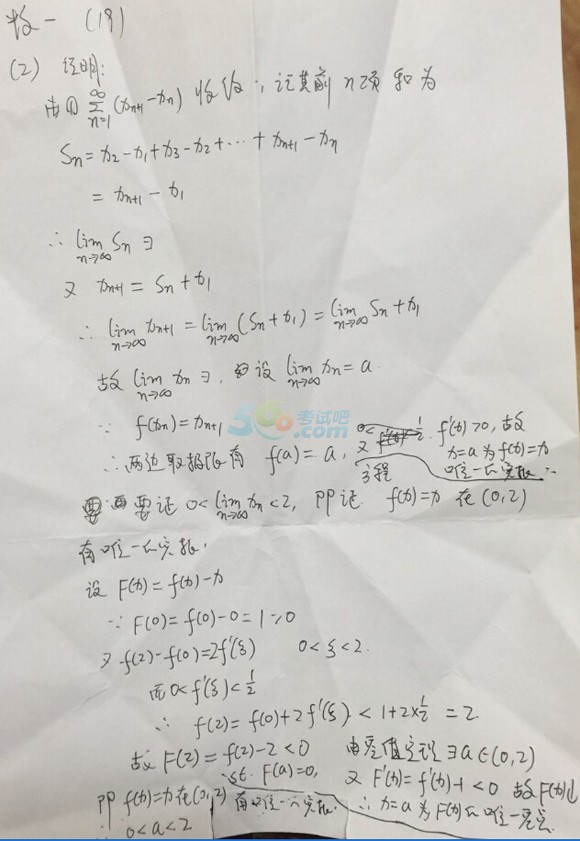 数一 (19)
(2) 证明:
由① ∑_{n=1}^{∞}(x_{n+1}-x_n) 收敛, 记其前n项和为
S_n = x_2-x_1+x_3-x_2+⋯+x_{n+1}-x_n
= x_{n+1}-x_1
∴ lim_{n→∞} S_n ∃
又 x_{n+1} = S_n+x_1
∴ lim_{n→∞} x_{n+1} = lim_{n→∞}(S_n+x_1) = lim_{n→∞} S_n+x_1
故 lim_{n→∞} x_n ∃, 设 lim_{n→∞} x_n = a.
500 考试吧
∵ f(x_n) = x_{n+1}
∴ 两边取极限有 f(a) = a,
又 f'(x)>0, 故
x=a 为 f(x)=x
方程 唯一的实根
要证 0<lim_{n→∞} x_n<2, 即证 f(x)=x 在 (0,2)
有唯一的实根.
设 F(x) = f(x)-x
∵ F(0) = f(0)-0 = 1>0
又 f(2)-f(0) = 2f'(ξ) 0<ξ<2.
而 0<f'(ξ)<1/2
∴ f(2) = f(0)+2f'(ξ) < 1+2×1/2 = 2
故 F(2) = f(2)-2<0 由零值定理 ∃a∈(0,2)
st. F(a)=0, 又 F'(x) = f'(x)-1<0 故 F(x)↓
即 f(x)=x 在 (0,2) 有唯一的实根. ∴ x=a 为 F(x) 的唯一零点
0<a<2